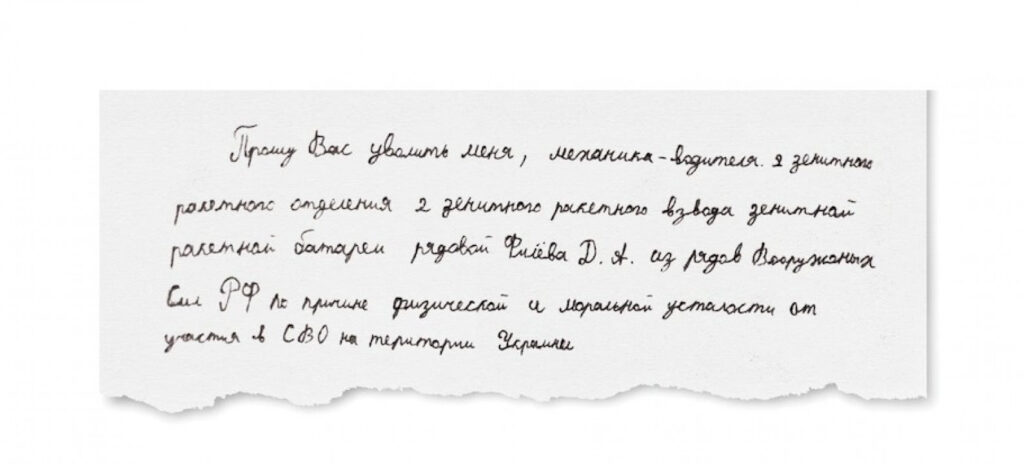 Прошу Вас уволить меня, механика-водителя 2 зенитного
ракетного отделения 2 зенитного ракетного взвода зенитной
ракетной батареи рядовой Филёва Д. А. из рядов Вооружоных
Сил РФ по причине физической и моральной усталости от
участия в СВО на територии Украины